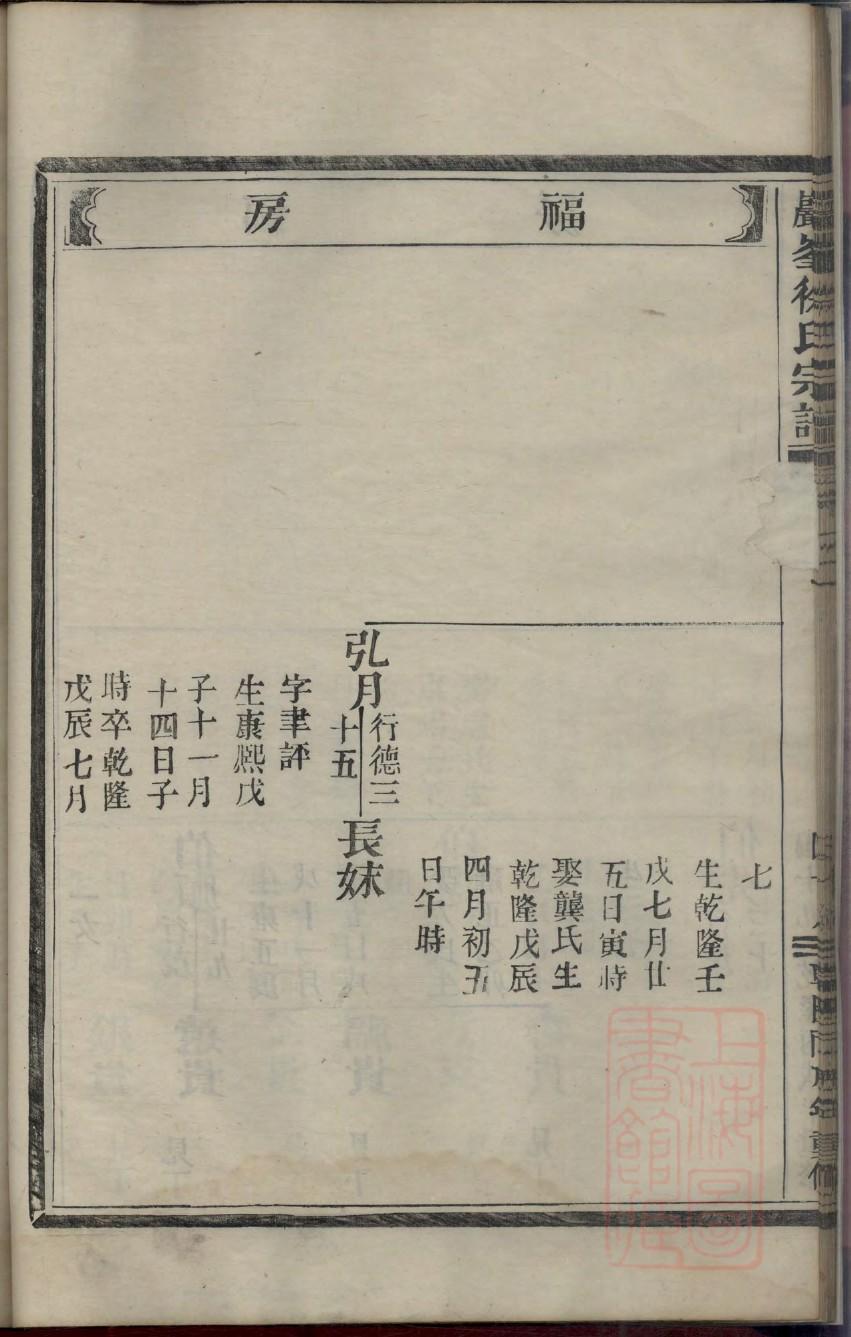 福房
七
生乾隆壬
戊七月廿
五日寅時
娶龔氏生
乾隆戊辰
四月初五
日午時
弘月
行德三
十五
長妹
字聿評
生康熙戊
子十一月
十四日子
時卒乾隆
戊辰七月
上海圖書館藏